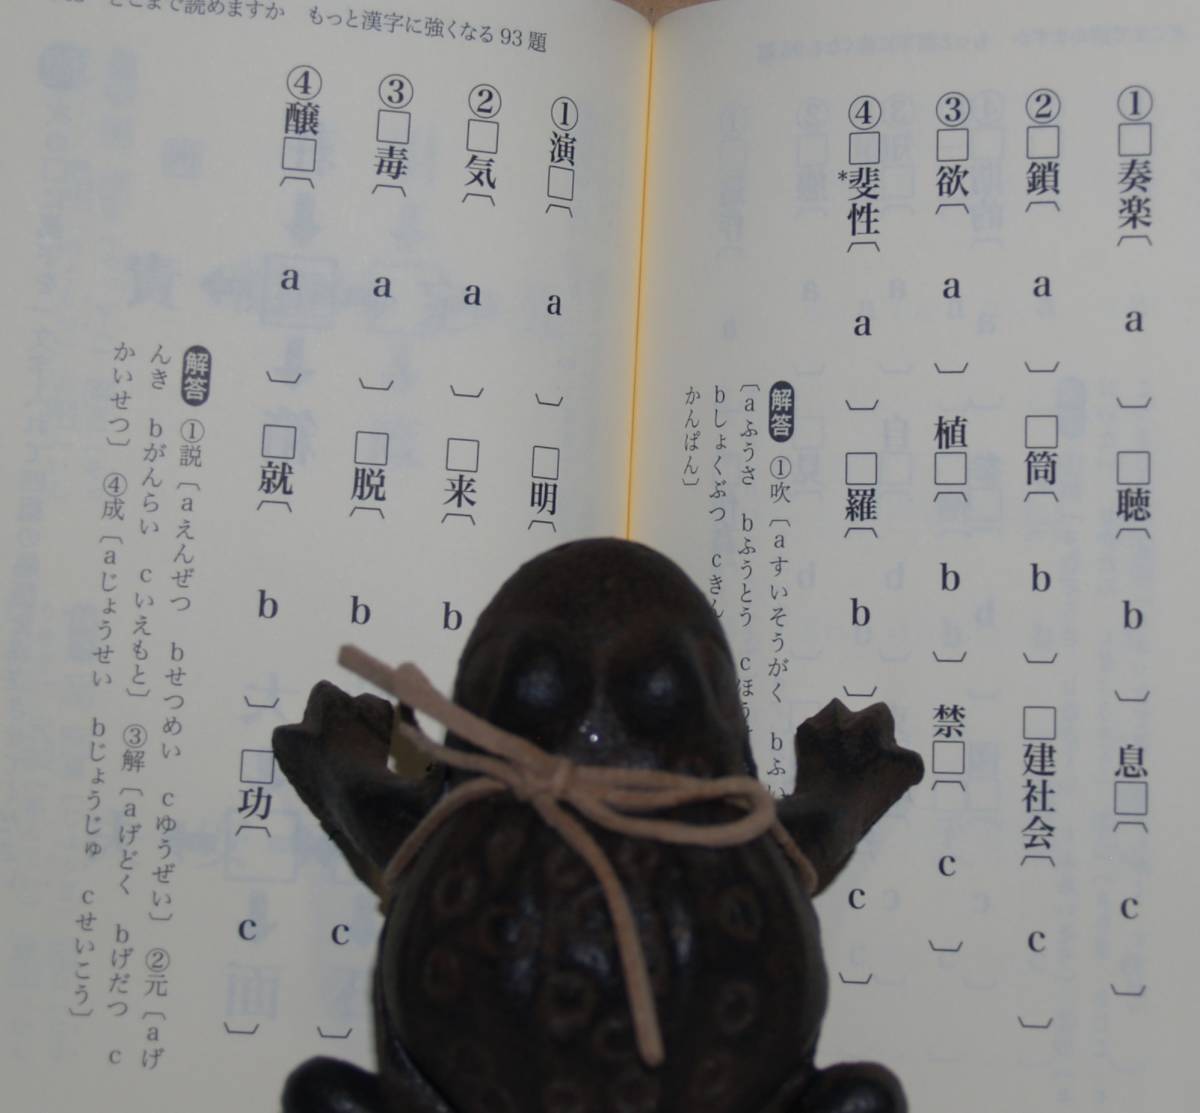 ①□奏楽〔 a 〕 □聴〔 b 〕 息□〔 c 〕
②□鎖〔 a 〕 □筒〔 b 〕 □建社会〔 c 〕
③□欲〔 a 〕 植□〔 b 〕 禁□〔 c 〕
④□*斐性〔 a 〕 □羅〔 b 〕 c 〕
解答 ①吹〔aすいそうがく bふい
〔aふうさ bふうとう cほう
bしょくぶつ cきん
かんぱん〕
どこまで読めますか もっと漢字に強くなる93題
①演□〔 a 〕 □明〔
②□気〔 a 〕 □来〔 b
③□毒〔 a 〕 □脱〔 b c 〕
④醸□〔 a 〕 □就〔 b 〕 □功〔 c 〕
解答 ①説〔aえんぜつ bせつめい cゆうぜい〕 ②元〔aげ
んき bがんらい cいえもと〕 ③解〔aげどく bげだつ c
かいせつ〕 ④成〔aじょうせい bじょうじゅ cせいこう〕